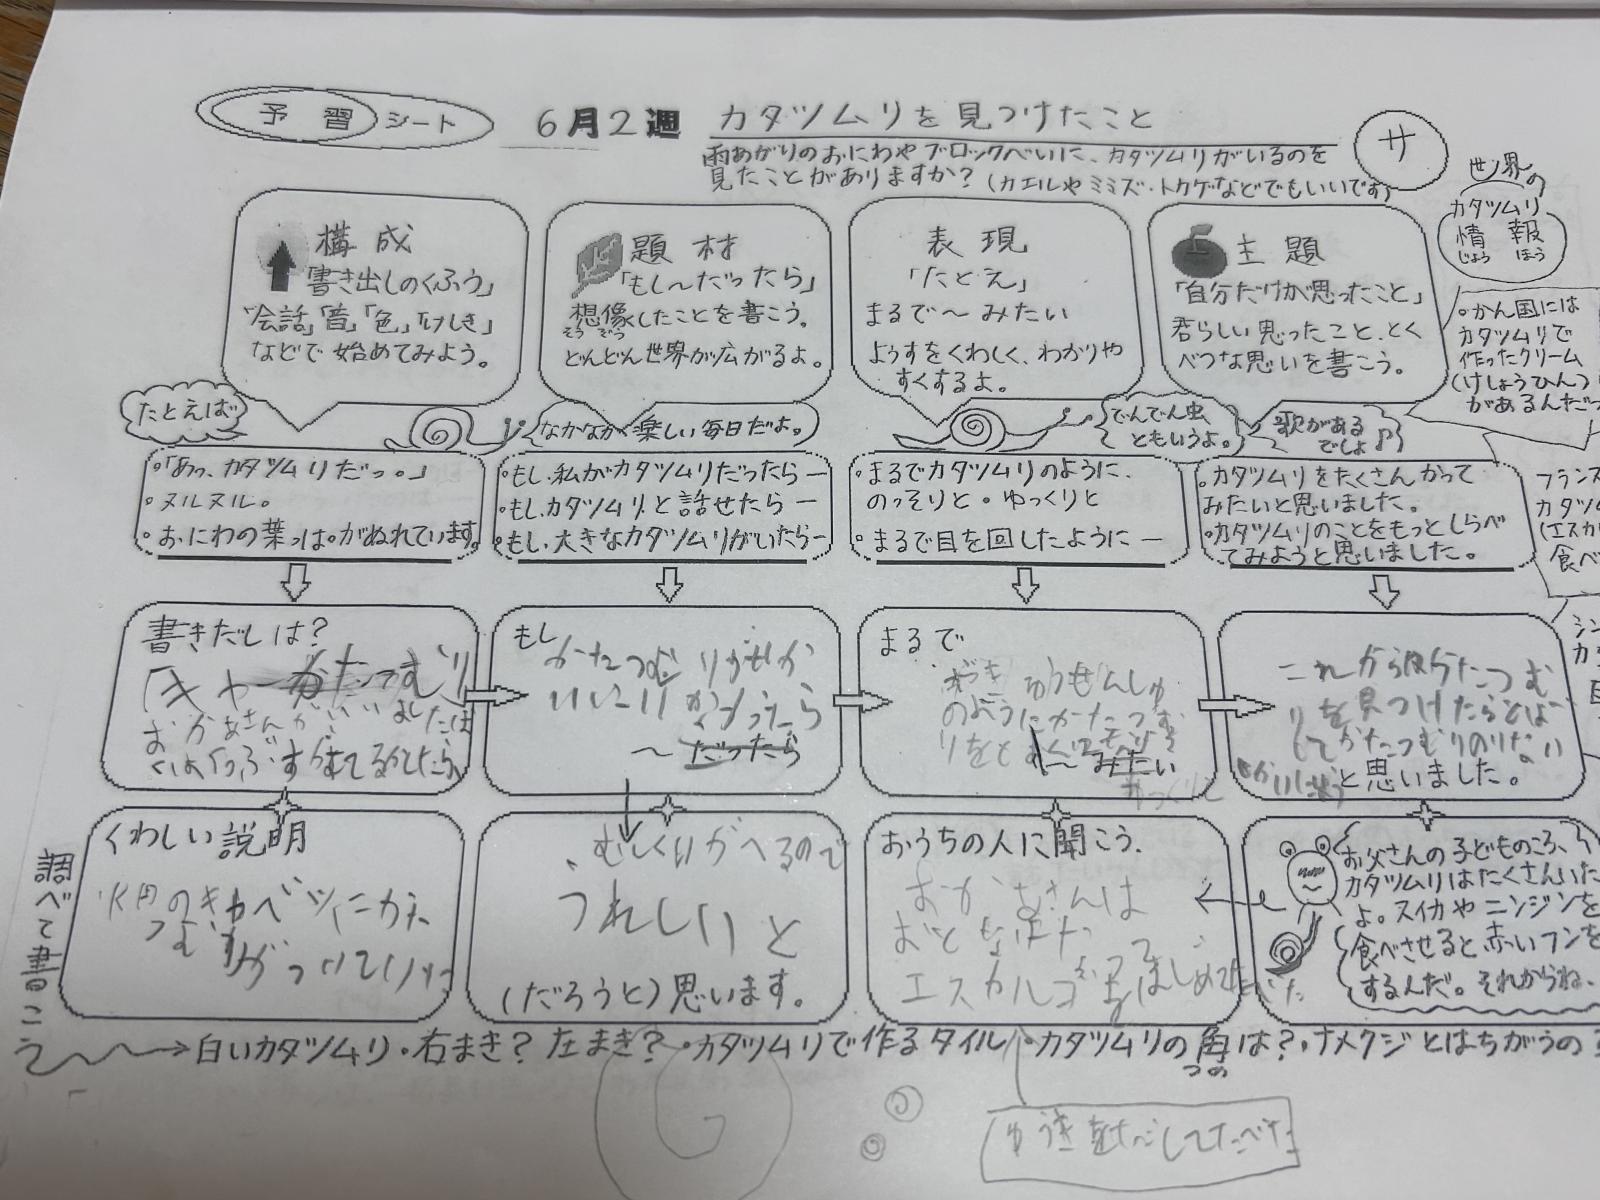 予習シート
6月2週 カタツムリを見つけたこと
雨あがりのおにわやブロックべいに、カタツムリがいるのを
見たことがありますか?(カエルやミミズ・トカゲなどでもいいです)
サ
世界の
カタツムリ
情報
じょう ほう
構成
「書き出しのくふう」
「会話」「音」「色」「けしき」
などで始めてみよう。
題材
「もし〜だったら」
想像したことを書こう。
そうぞう
どんどん世界が広がるよ。
表現
「たとえ」
まるで〜みたい
ようすをくわしく、わかりや
すくするよ。
主題
「自分だけが思ったこと」
君らしい思ったこと、とく
べつな思いを書こう。
。かん国には
カタツムリで
作ったクリーム
(けしょうひん)
があるんだっ
たとえば
なかなかく楽しい毎日だよ。
でんでん虫
ともいうよ。
歌がある
でしょ♪
・「あっ、カタツムリだっ。」
・ヌルヌル。
・おにわの葉っぱがぬれています。
・もし、私がカタツムリだったら—
・もし、カタツムリと話せたら—
・もし、大きなカタツムリがいたら—
・まるでカタツムリのように、
のっそりと・ゆっくりと
・まるで目を回したように—
・カタツムリをたくさんかって
みたいと思いました。
・カタツムリのことをもっとしらべ
てみようと思いました。
フランス
カタツム
(エスカル
食べ
書きだしは?
「キャーかたつむり
おかあさんがいいました
もし
かたつむりがせか
いにいなかったら
〜だったら
まるで
のように かたつむ
りをと
〜みたい
ゆっくりと
これから かたつむ
りを見つけたら
してかたつむりのりない
と思いました。
シン
カタ
調べて書こう
くわしい説明
畑のキャベツにかた
つむりがついていた
むしくいがへるので
うれしいと
(だろうと)思います。
おうちの人に聞こう。
おかあさんは
おとなになった
エスカルゴを はじめて
お父さんの子どものころ、
カタツムリはたくさんいた
よ。スイカやニンジンを
食べさせると赤いフンを
するんだ。それからね、
白いカタツムリ・右まき?左まき?・カタツムリで作るタイル・カタツムリの角は?・ナメクジとはちがうの
つの
ゆうきをだしてたべた